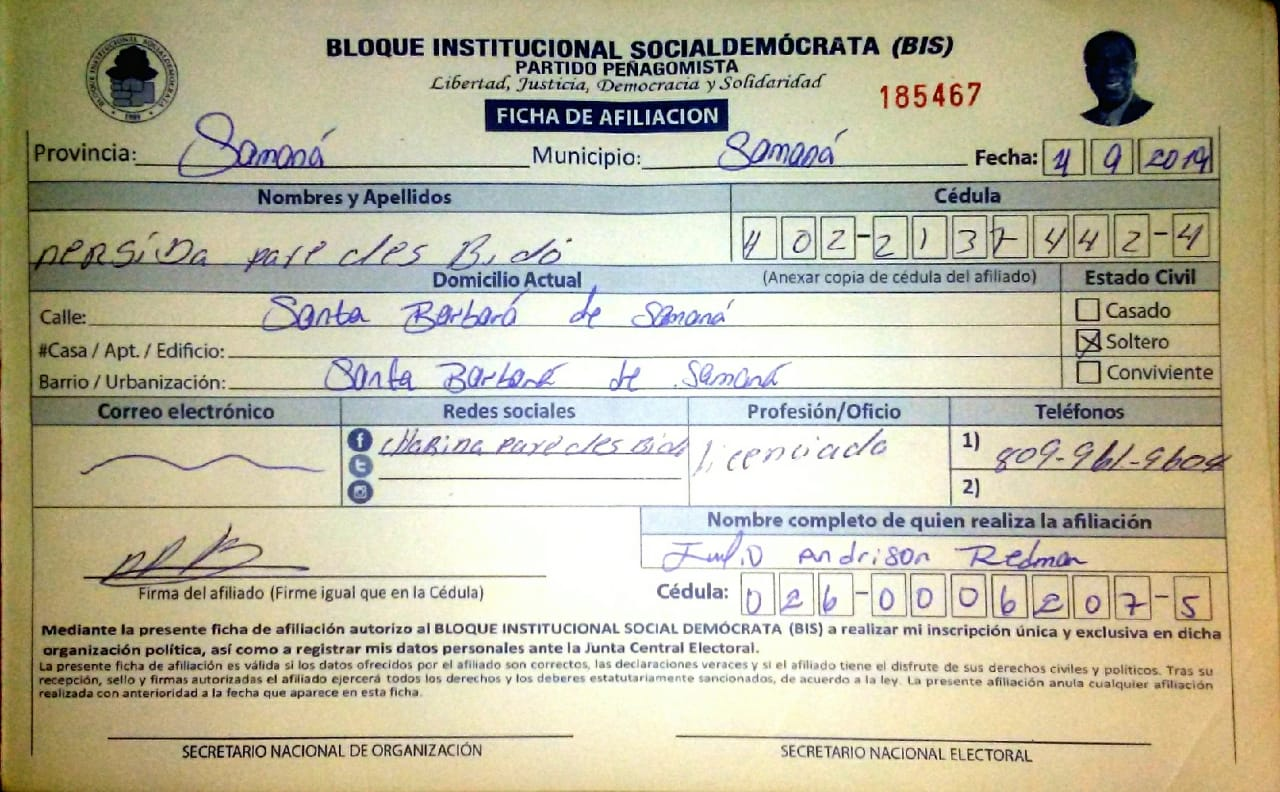 BLOQUE INSTITUCIONAL SOCIALDEMÓCRATA (BIS)
PARTIDO PEÑAGOMISTA
Libertad, Justicia, Democracia y Solidaridad
185467
FICHA DE AFILIACION
Provincia: Samaná Municipio: Samaná Fecha: 4 9 2019
Nombres y Apellidos Cédula
nersida paredes Bidó 402-2137442-4
Domicilio Actual (Anexar copia de cédula del afiliado) Estado Civil
Calle: Santa Barbará de Samaná
Casado
#Casa / Apt. / Edificio: Soltero
Barrio / Urbanización: Santa Barbará de Samaná Conviviente
Correo electrónico Redes sociales Profesión/Oficio Teléfonos
paredes Bido licenciado 1) 809-961-9604
2)
Nombre completo de quien realiza la afiliación
Julio Andrison Redman
Firma del afiliado (Firme igual que en la Cédula) Cédula: 026-0006207-5
Mediante la presente ficha de afiliación autorizo al BLOQUE INSTITUCIONAL SOCIAL DEMÓCRATA (BIS) a realizar mi inscripción única y exclusiva en dicha
organización política, así como a registrar mis datos personales ante la Junta Central Electoral.
La presente ficha de afiliación es válida si los datos ofrecidos por el afiliado son correctos, las declaraciones veraces y si el afiliado tiene el disfrute de sus derechos civiles y políticos. Tras su
recepción, sello y firmas autorizadas el afiliado ejercerá todos los derechos y los deberes estatutariamente sancionados, de acuerdo a la ley. La presente afiliación anula cualquier afiliación
realizada con anterioridad a la fecha que aparece en esta ficha.
SECRETARIO NACIONAL DE ORGANIZACIÓN SECRETARIO NACIONAL ELECTORAL